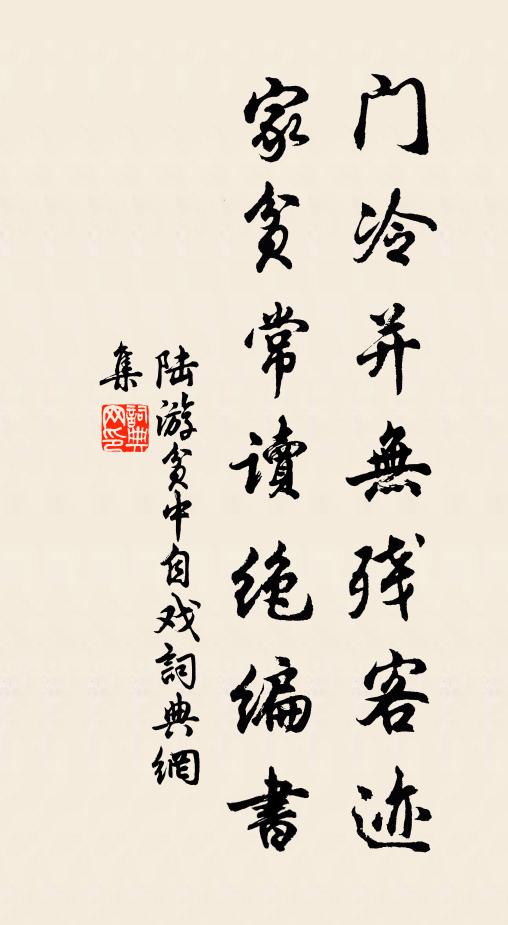 门冷并無残客迹
家贫常读绝编書
陆游贫中自戏詞典網
集
詞典网印